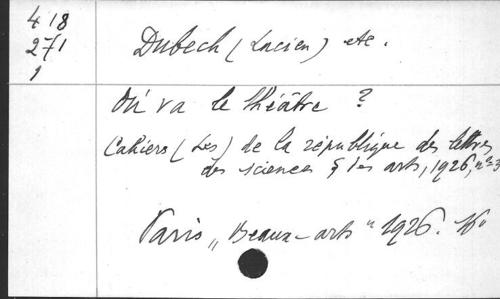 418
271
1
Dubech (Lucien) etc.
Où va le théâtre ?
Cahiers (Les) de la république des lettres
des sciences & les arts, 1926, n° 3
Paris „Beaux-arts" 1926. 16°